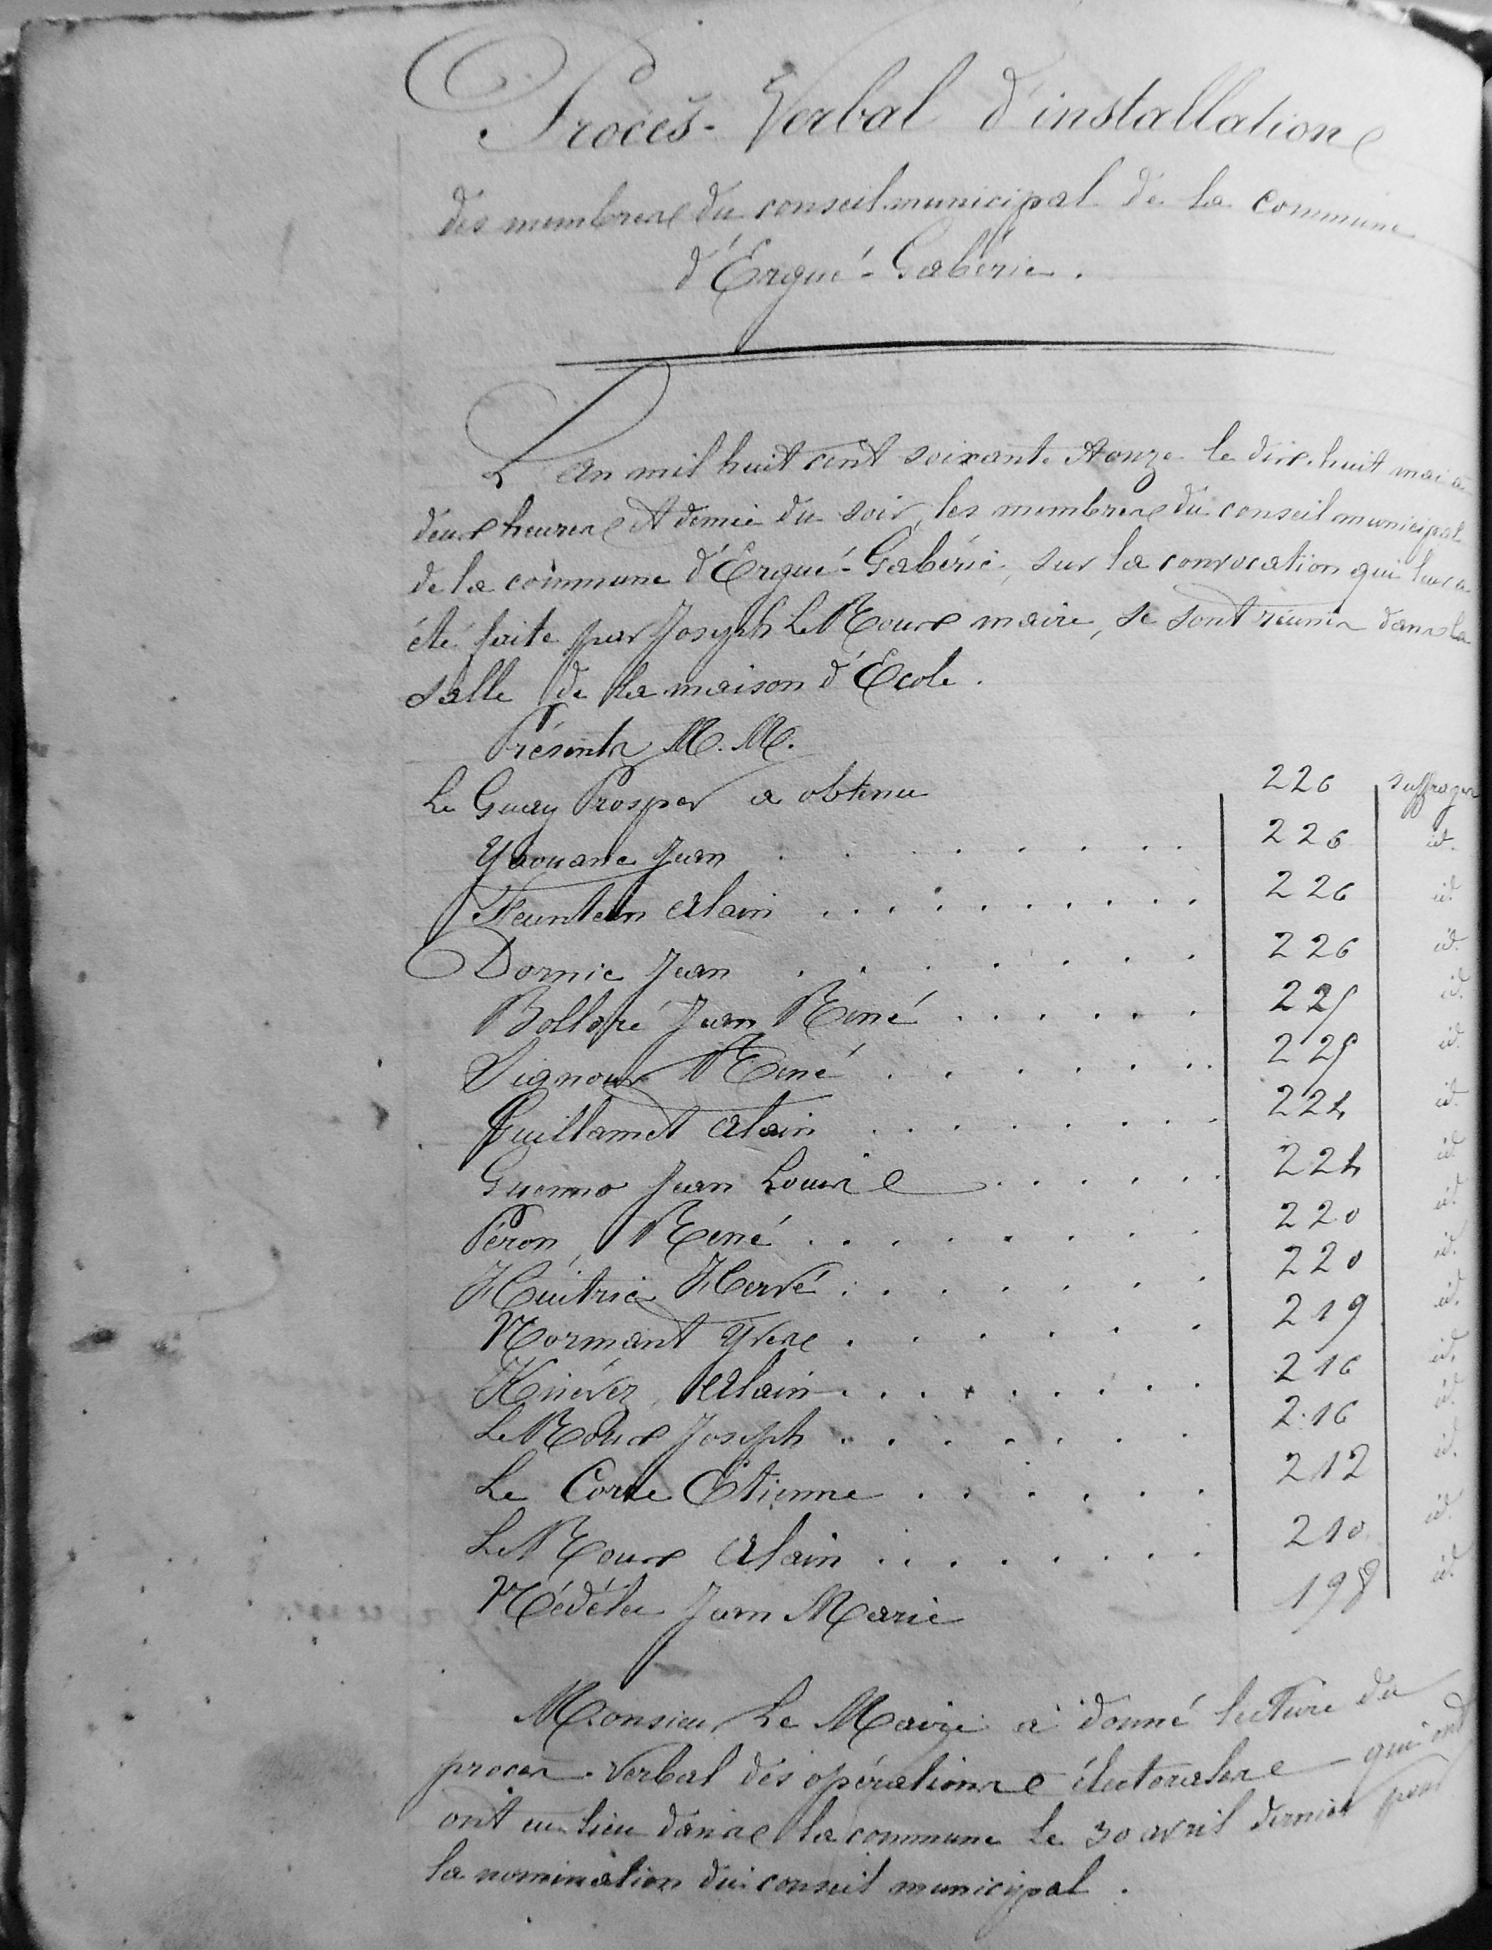 Procès-Verbal d'installation
des membres du conseil municipal de la commune
d'Ergué-Gabéric.
L'an mil huit cent soixante et onze le dix-huit mai à
deux heures et demie du soir, les membres du conseil municipal
de la commune d'Ergué-Gabéric, sur la convocation qui leur a
été faite par Joseph Le Roux maire, se sont réunis dans la
salle de la maison d'Ecole.
Présents M.M.
Le Guay Prosper a obtenu 226 suffrages
Yaouanc Jean 226 id.
Feunteun Alain 226 id.
Dornic Jean 226 id.
Bolloré Jean René 225 id.
Signour René 225 id.
Guillamet Alain 224 id.
Guenno Jean Louis 224 id.
Péron, René 220 id.
Huitric Hervé 220 id.
Normant Yves 219 id.
Kinévez, Alain 216 id.
Le Roux Joseph 216 id.
Le Corre Etienne 212 id.
Le Roux Alain 210 id.
Nédélec Jean Marie 198 id.
Monsieur Le Maire a donné lecture du
procès-verbal des opérations électorales qui ont
ont eu lieu dans la commune le 30 avril dernier pour
la nomination du conseil municipal.